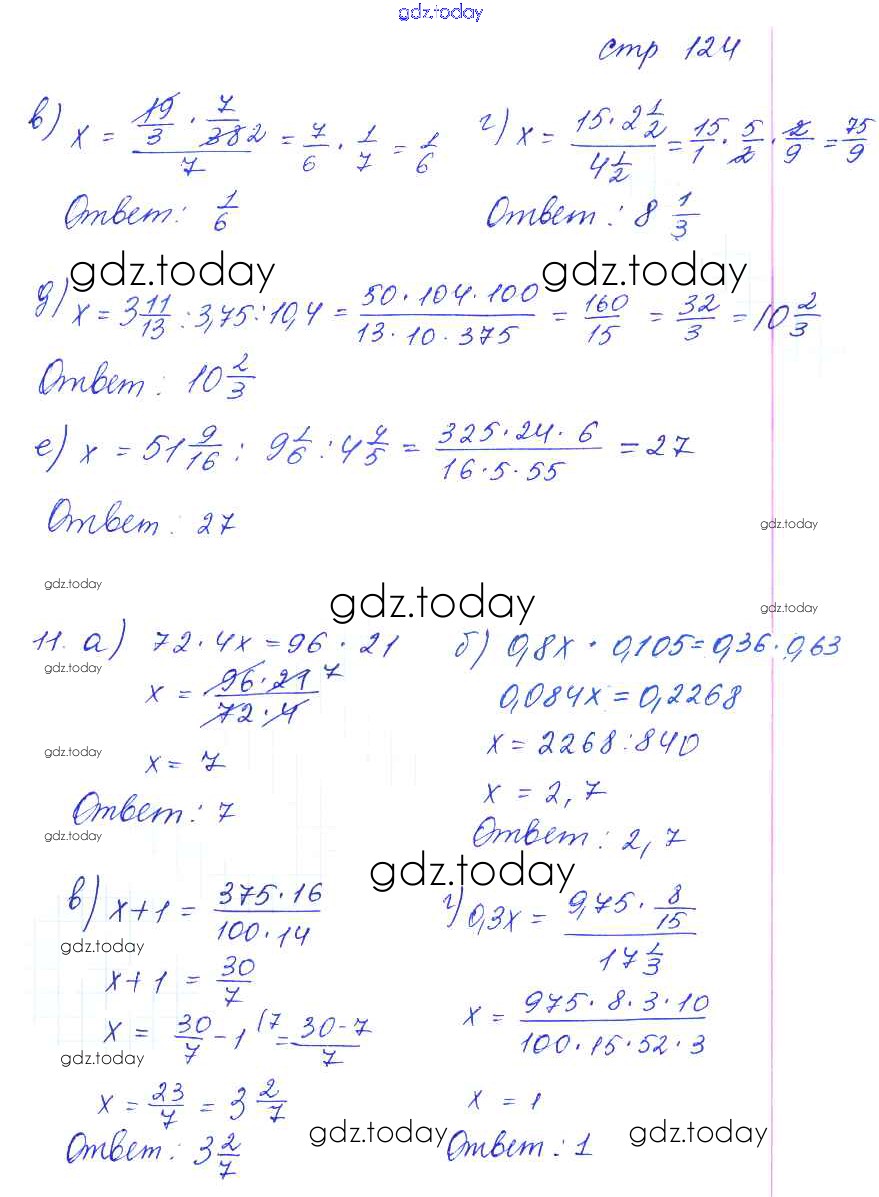 gdz.today
стр 124
в) x = (19/3 · 7/38 2)/7 = 7/6 · 1/7 = 1/6
Ответ: 1/6
г) x = (15 · 2 1/2)/(4 1/2) = 15/1 · 5/2 · 2/9 = 75/9
Ответ: 8 1/3
gdz.today gdz.today
д) x = 3 11/13 : 3,75 : 10,4 = (50 · 104 · 100)/(13 · 10 · 375) = 160/15 = 32/3 = 10 2/3
Ответ: 10 2/3
е) x = 51 9/16 : 9 1/6 : 4 4/5 = (325 · 24 · 6)/(16 · 5 · 55) = 27
Ответ: 27
gdz.today
gdz.today
gdz.today
gdz.today
11. а) 72 · 4x = 96 · 21
gdz.today
x = (96 · 21 7)/(72 · 4)
gdz.today
x = 7
Ответ: 7
gdz.today
б) 0,8x · 0,105 = 0,36 · 0,63
0,084x = 0,2268
x = 2268 : 840
x = 2,7
Ответ: 2,7
gdz.today
в) x + 1 = (375 · 16)/(100 · 14)
gdz.today
x + 1 = 30/7
x = 30/7 - 1 (7 = (30 - 7)/7
gdz.today
x = 23/7 = 3 2/7
Ответ: 3 2/7
г) 0,3x = (9,75 · 8/15)/(17 1/3)
x = (975 · 8 · 3 · 10)/(100 · 15 · 52 · 3)
x = 1
gdz.today Ответ: 1 gdz.today